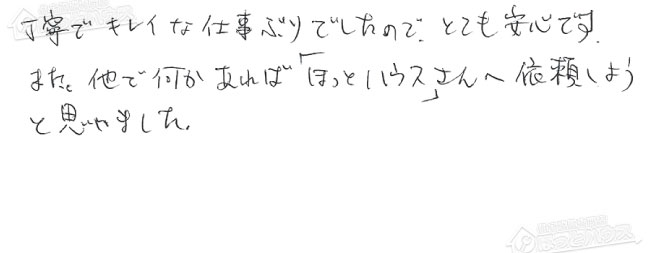 丁寧でキレイな仕事ぶりでしたので、とても安心です。
また、他で何かあれば「ほっとハウス」さんへ依頼しよう
と思いました。
ほっとハウス